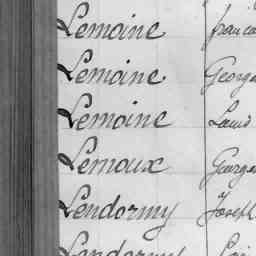 Lemoine franco
Lemoine George
Lemoine Louis
Lemoux George
Lendormy Joseph
Lendormy